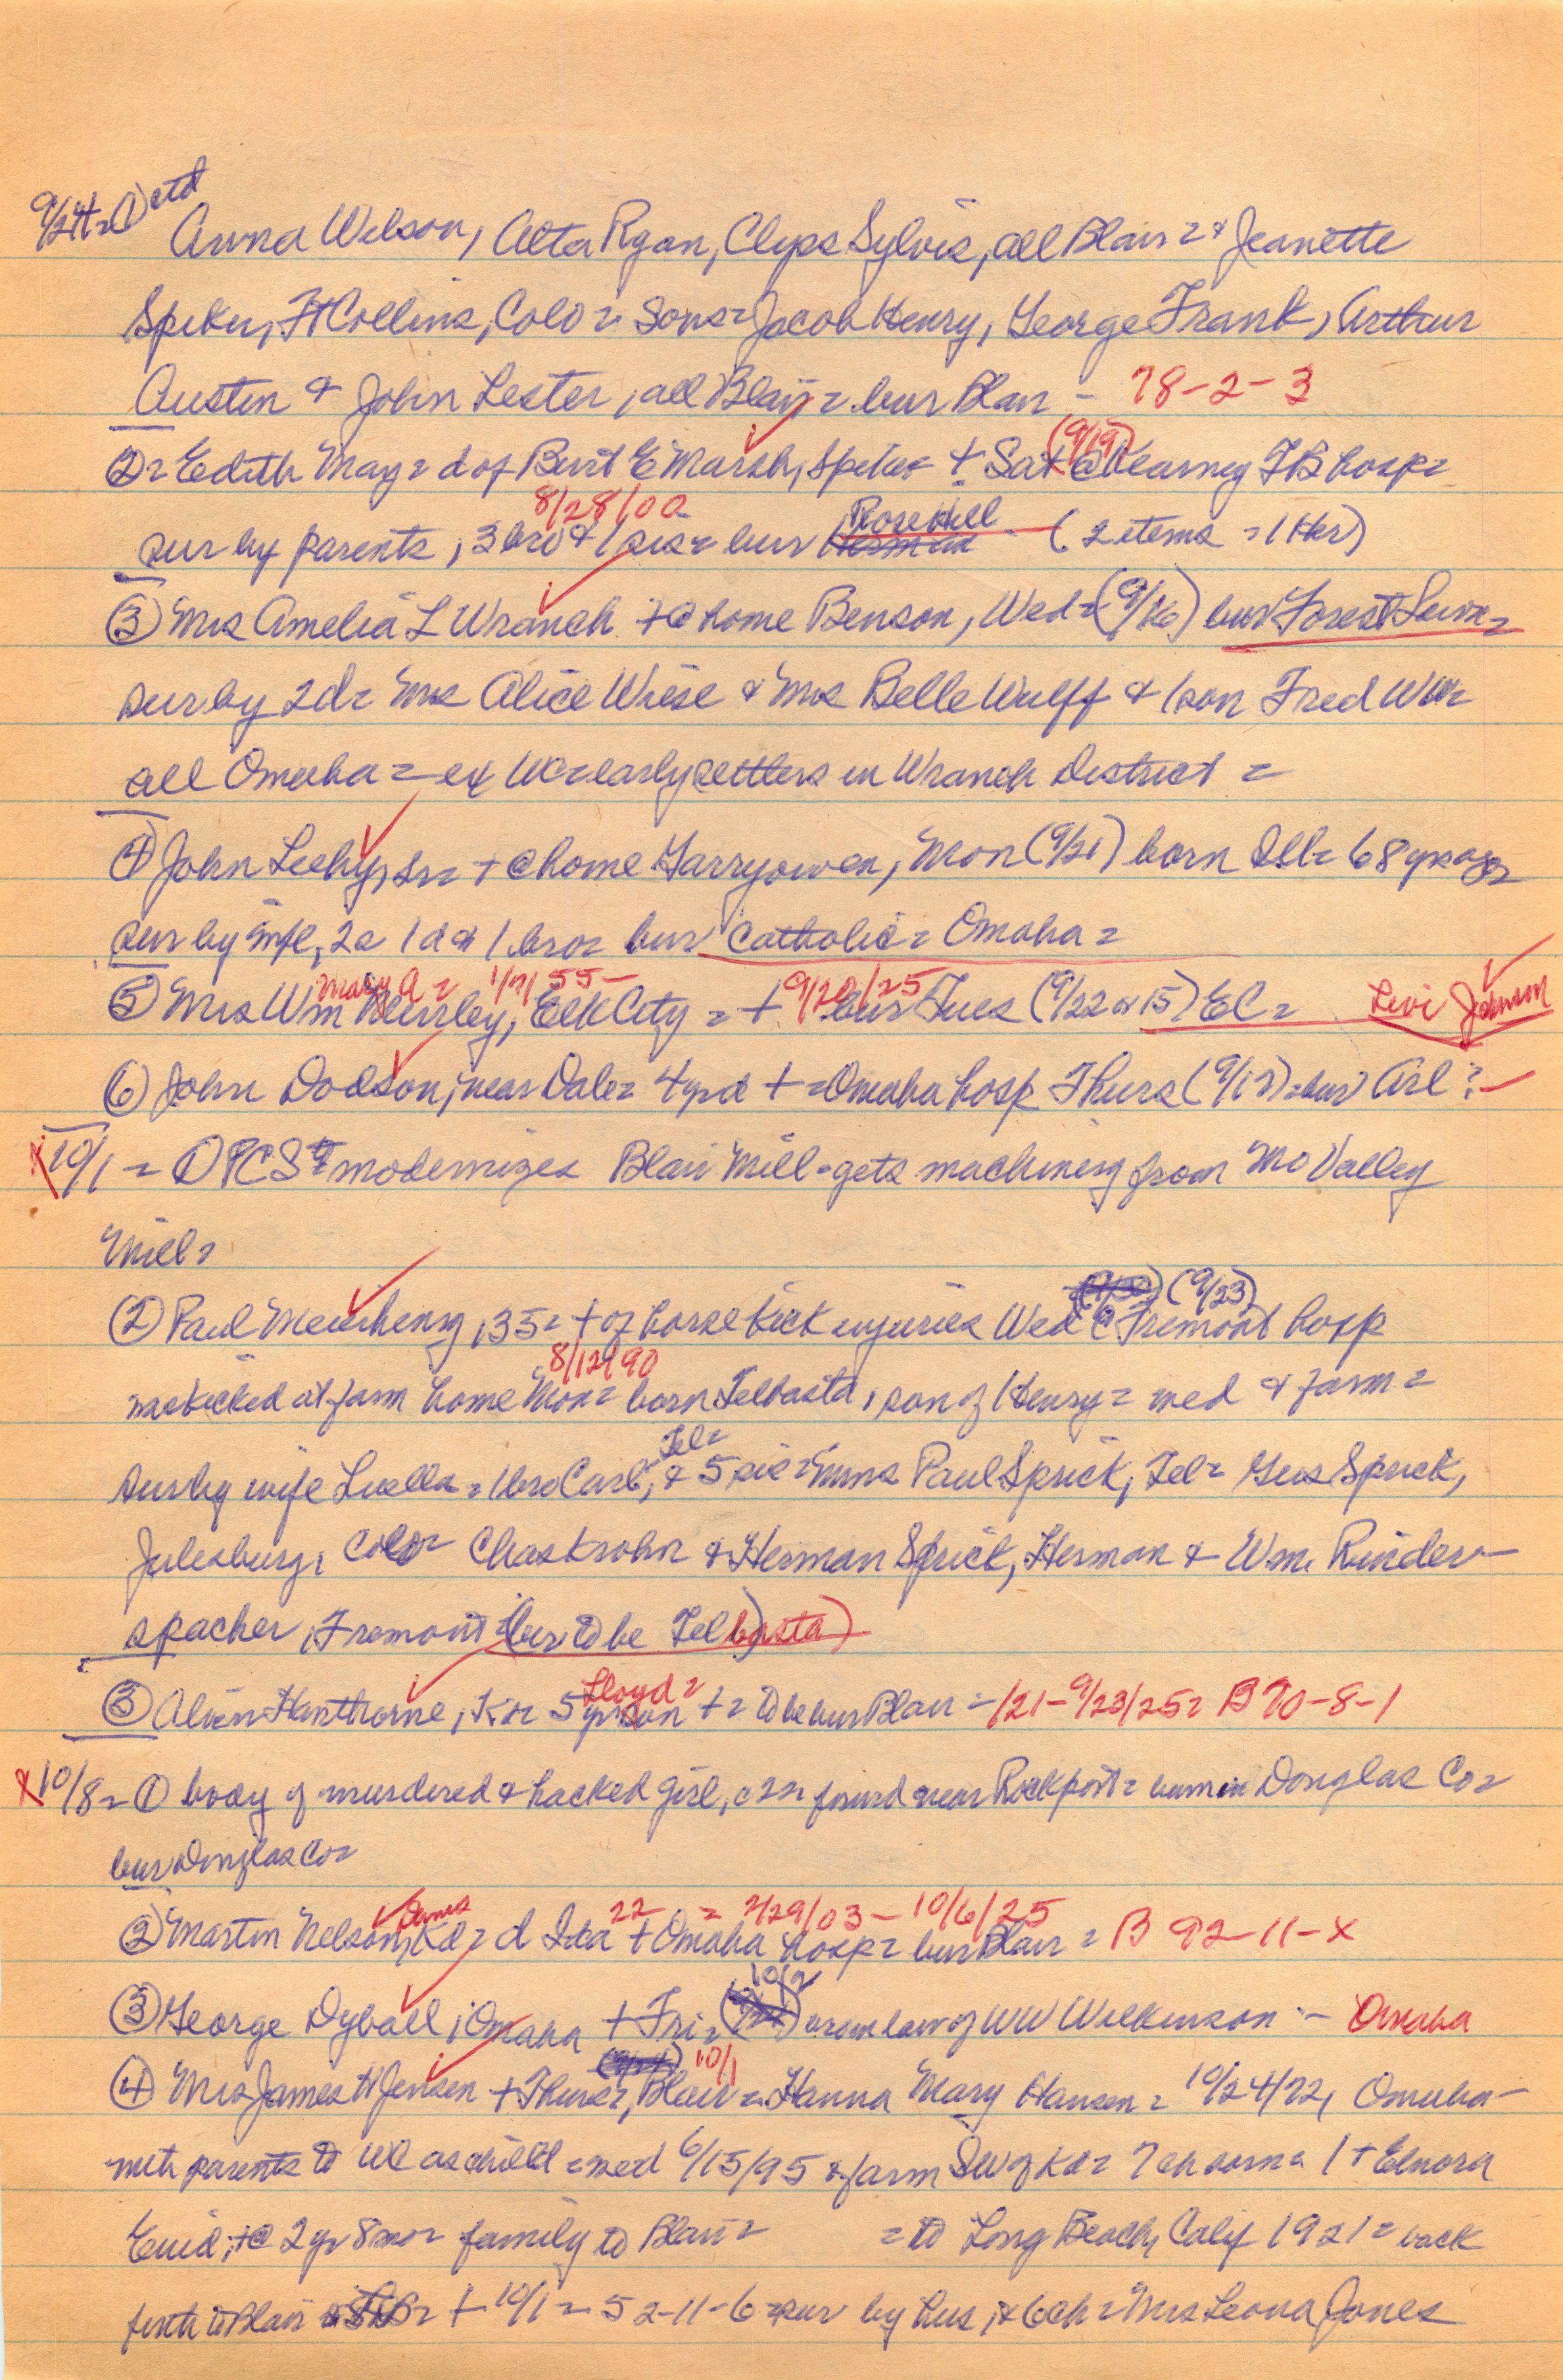 9/24 = ① ctd
Anna Wilson, Alta Ryan, Clyps Sylvis, all Blair = & Jeanette
Spiker, Ft Collins, Colo = Sons = Jacob Henry, George Frank, Arthur
Austin & John Lester, all Blair = bur Blair - 78-2-3
② = Edith May = d of Burt E Marsh, Spiker + Sat (9/19) @ Kearney TB hosp =
8/28/00
sur by parents, 3 bro & 1 sis = bur Rose Hill (2 items = 1 Her)
③ Mrs Amelia L Wranch + @ home Benson, Wed = (9/16) bur Forest Lawn =
sur by 2 d = Mrs Alice Wiese & Mrs Belle Wulff & 1 son Fred W
all Omaha = ex WC = early settlers in Wranch District =
④ John Leehy, Sr = + @ home Garryowen, Mon (9/21) born Ill = 68 yrs age
sur by wife, 2 s 1 d & 1 bro = bur Catholic = Omaha =
Mary A = 1/7/55 - 9/20/25
⑤ Mrs Wm, Elk City = + bur Tues (9/22 or 15) EC = Levi Johnson
⑥ John Dodson, near Dale = 4 yr d + = Omaha hosp Thurs (9/17) = bur Arl ? -
x 10/1 = ① PCS modernizes Blair Mill - gets machinery from Mo Valley
Mill =
② Paul Meierhenry, 35 = + of horse kick injuries Wed (9/23) @ Fremont hosp
8/12/90
was kicked at farm home Mon = born Telbasta, son of Henry = med & farm =
Tel =
sur by wife Luella = 1 bro Carl, & 5 sis = Mmes Paul Sprick, Tel = Gus Sprick,
Julesburg, Colo = Chas Krohn & Herman Sprick, Herman & Wm. Rinder-
spacher, Fremont = (bur to be Telbasta)
Lloyd =
③ Alvin Hawthorne, K = 5 yr son + = to be bur Blair = /21 - 9/23/25 = B 70-8-1
x 10/8 = ① body of murdered & hacked girl, found near Rockport = Douglas Co =
bur Douglas Co =
22 = 7/29/03 - 10/6/25
② Martin Nelson, Kd = d Ida + Omaha hosp = bur Blair = B 92-11-X
10/2
③ George Dyball, Omaha + Fri = of WW Wilkinson - Omaha
10/1
④ Mrs James H Jensen + Thurs, Blair = Hanna Mary Hansen = 10/24/72, Omaha -
with parents to WC as child = med 6/15/95 & farm SW of Kd = 7 ch 1 + Elnora
Enid, + @ 2 yr 8 mo = family to Blair = = to Long Beach, Calif 1921 = back
to Blair = + 10/1 = 52-11-6 = sur by hus, & 6 ch = Mrs Leona Jones